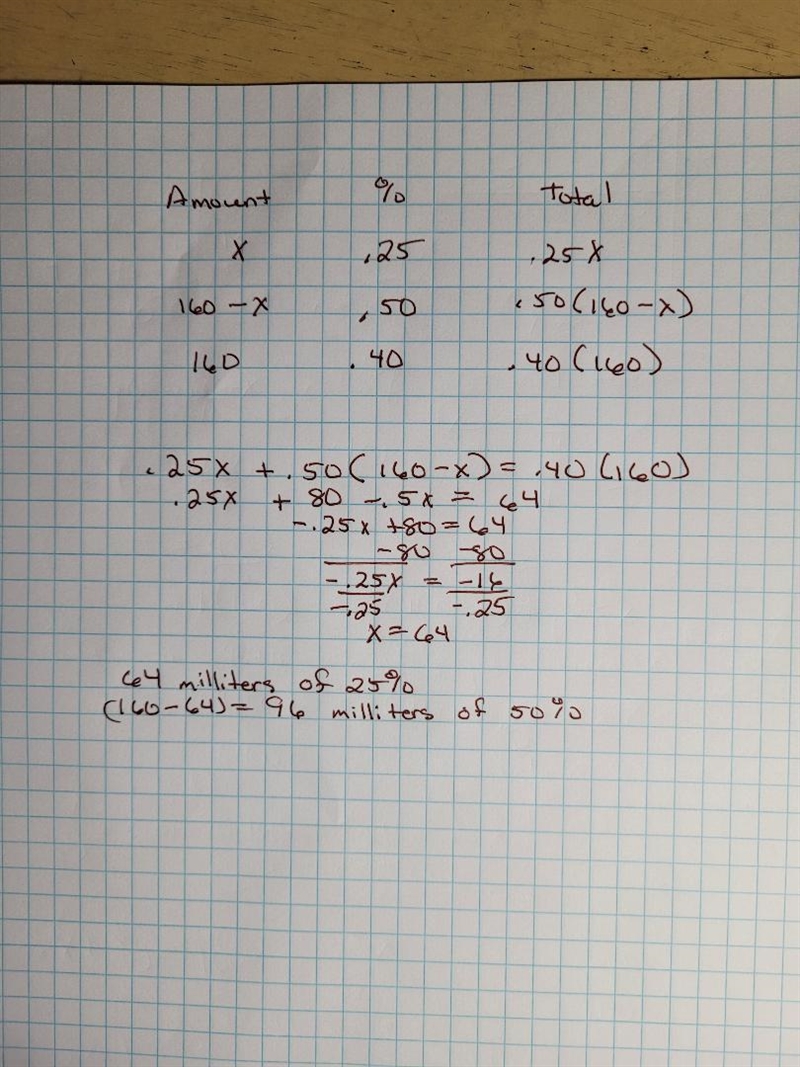 Amount % Total
x .25 .25x
160-x .50 .50(160-x)
160 .40 .40(160)
.25x + .50(160-x) = .40(160)
.25x + 80 -.5x = 64
-.25x +80 = 64
-80 -80
-.25x = -16
-.25 -.25
x = 64
64 milliters of 25%
(160-64) = 96 milliters of 50%